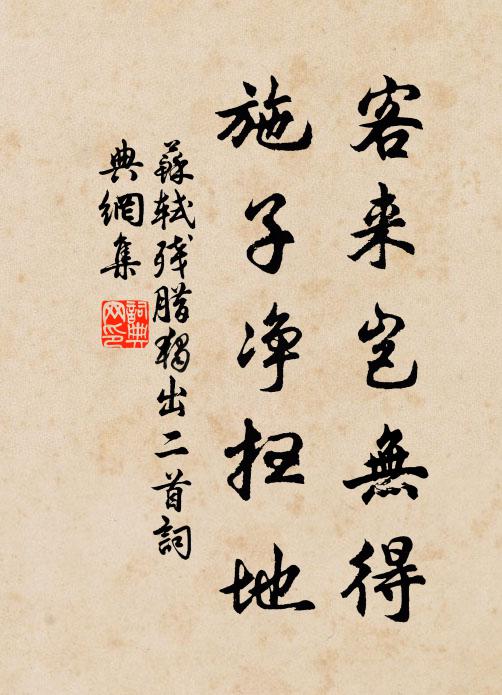 客来岂無得
施子净扫地
蘇轼残腊獨出二首詞
典網集
詞典网印